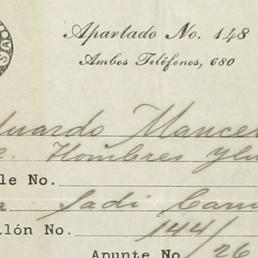 Apartado No. 148
Ambos Teléfonos, 680
duardo Mance
Hombres y
le No.
Sadi Carn
llón No. 144/
Apunte No. 26